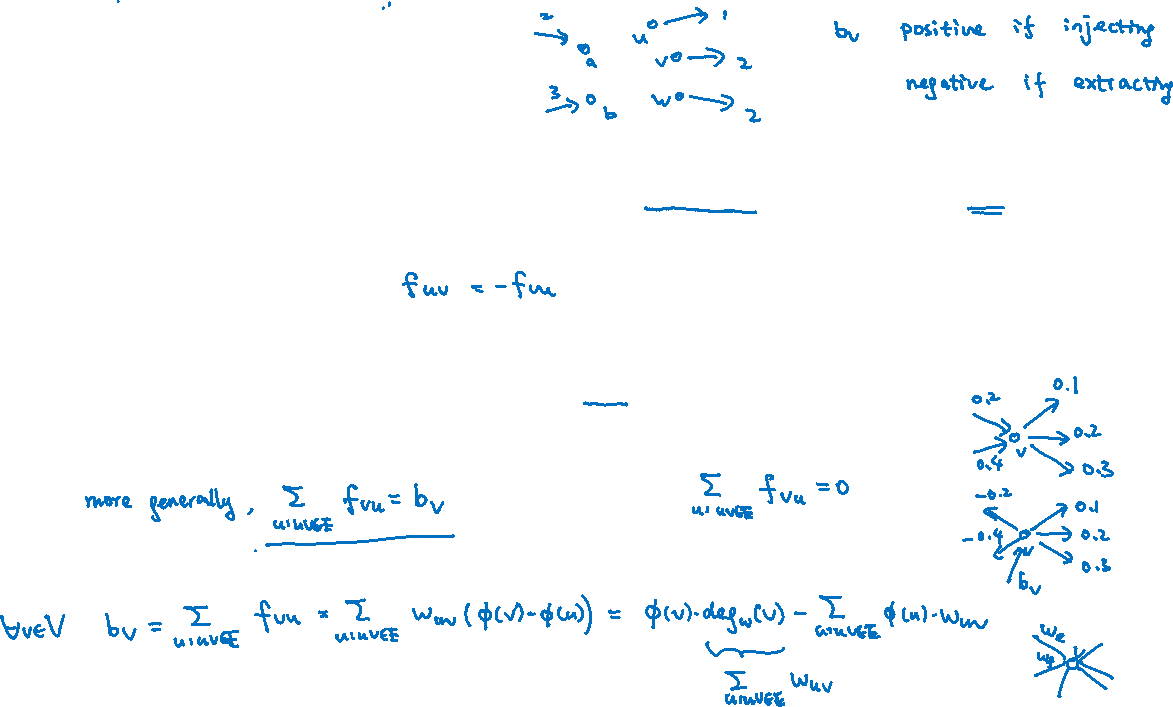 2 → a
3 → b
u → 1
v → 2
w → 2
b_v positive if injecting
negative if extracting
f_{uv} = -f_{vu}
0.2 0.1
0.4 v 0.2
0.3
more generally, ∑_{u:uv∈E} f_{vu} = b_v
∑_{u:uv∈E} f_{vu} = 0
-0.2 0.1
-0.4 v 0.2
0.3
b_v
∀v∈V b_v = ∑_{u:uv∈E} f_{vu} = ∑_{u:uv∈E} w_{uv} (ϕ(v)-ϕ(u)) = ϕ(v)·deg_w(v) - ∑_{u:uv∈E} ϕ(u)·w_{uv}
∑_{u:uv∈E} w_{uv}
w_e